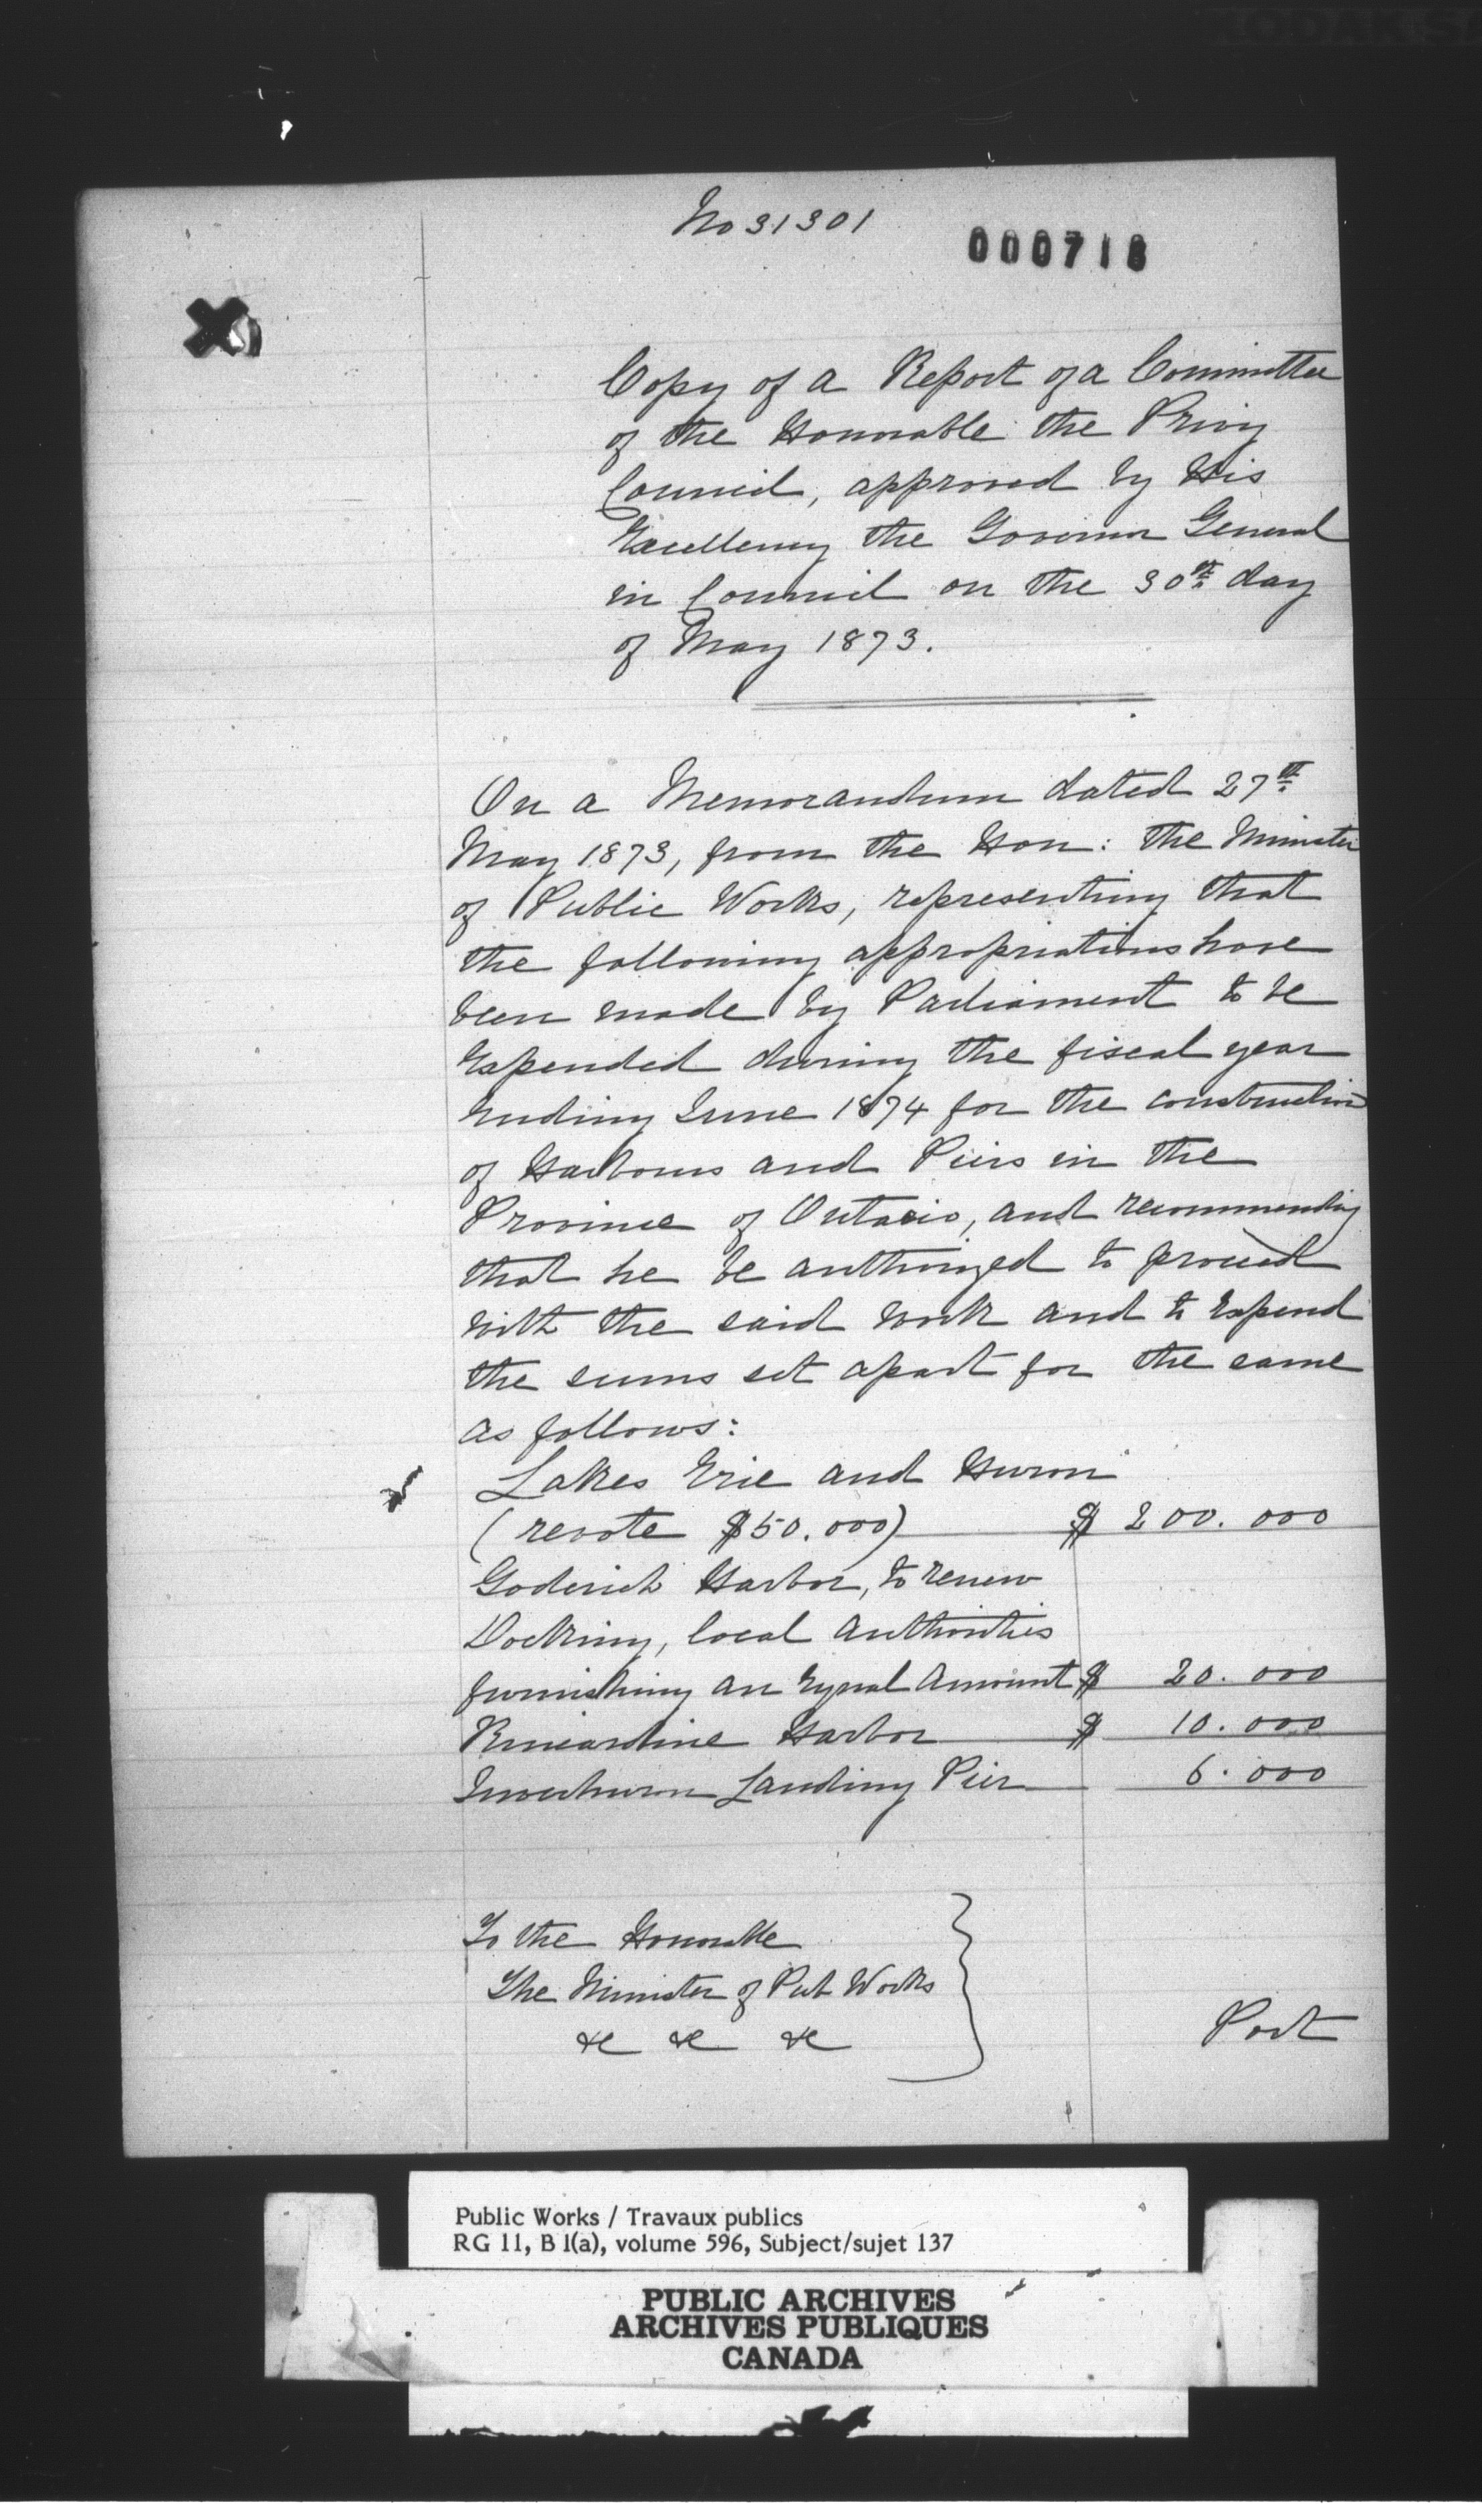 No 31301
000718
Copy of a Report of a Committee
of the Honorable the Privy
Council, approved by His
Excellency the Governor General
in Council on the 30th day
of May 1873.
On a Memorandum dated 27th
May 1873, from the Hon: the Minister
of Public Works, representing that
the following appropriations have
been made by Parliament to be
expended during the fiscal year
ending June 1874 for the construction
of Harbours and Piers in the
Province of Ontario, and recommending
that he be authorized to proceed
with the said work and to expend
the sums set apart for the same
as follows:
Lakes Erie and Huron
(revote $50.000) $ 200.000
Goderich Harbor, to renew
Docking, local authorities
furnishing an equal amount $ 20.000
Kincardine Harbor $ 10.000
Inverhuron Landing Pier 6.000
To the Honorable
The Minister of Pub Works
&c &c &c
Port
Public Works / Travaux publics
RG 11, B 1(a), volume 596, Subject/sujet 137
PUBLIC ARCHIVES
ARCHIVES PUBLIQUES
CANADA